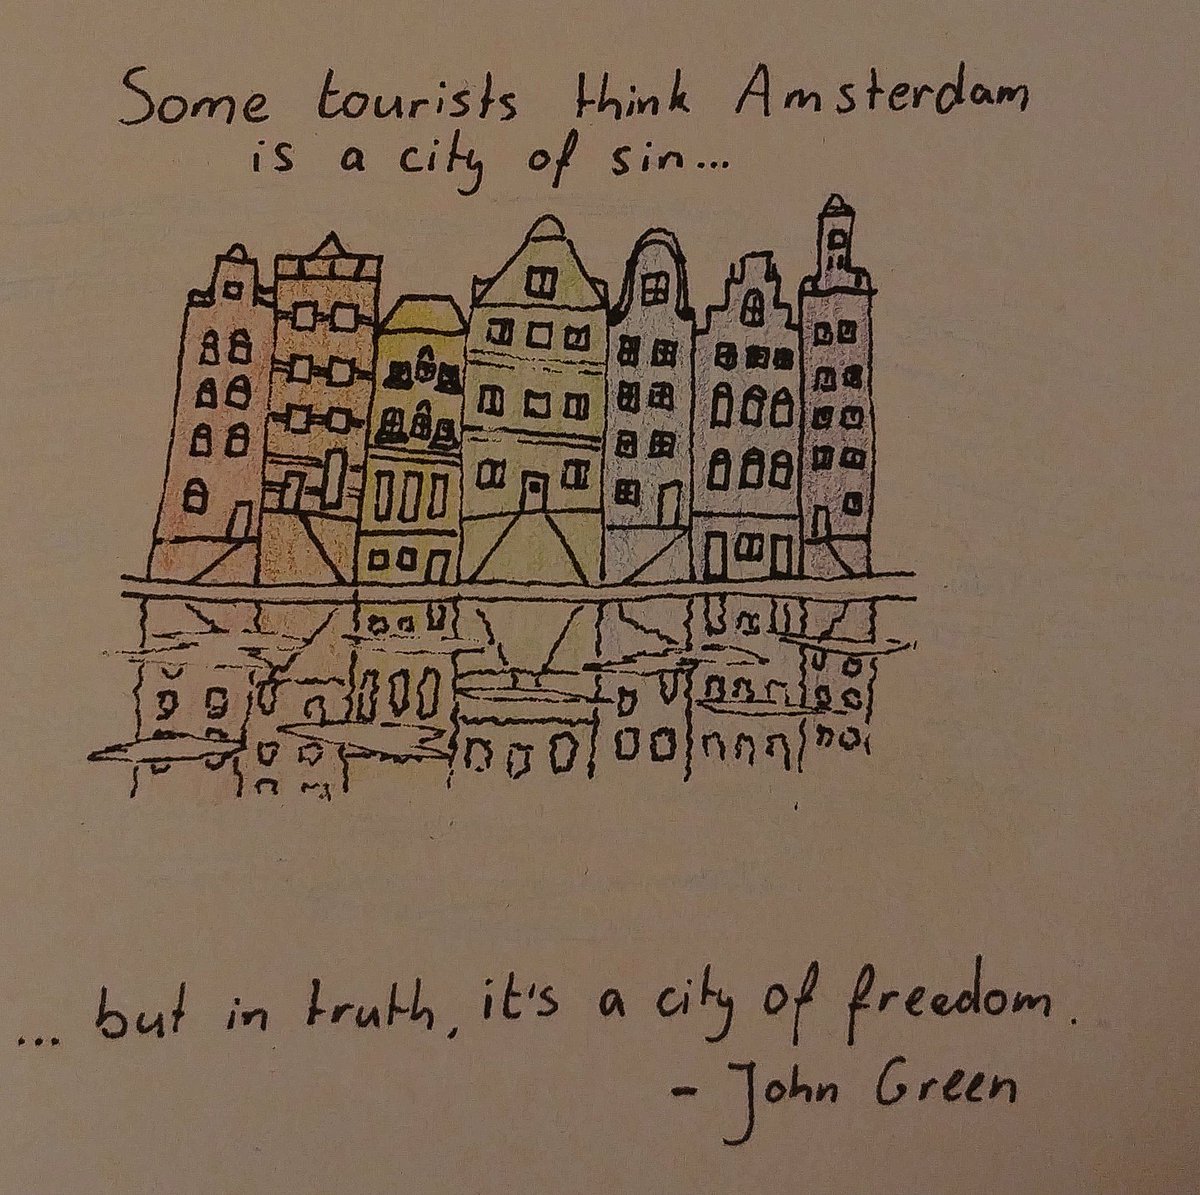 Some tourists think Amsterdam
is a city of sin...
... but in truth, it's a city of freedom.
- John Green